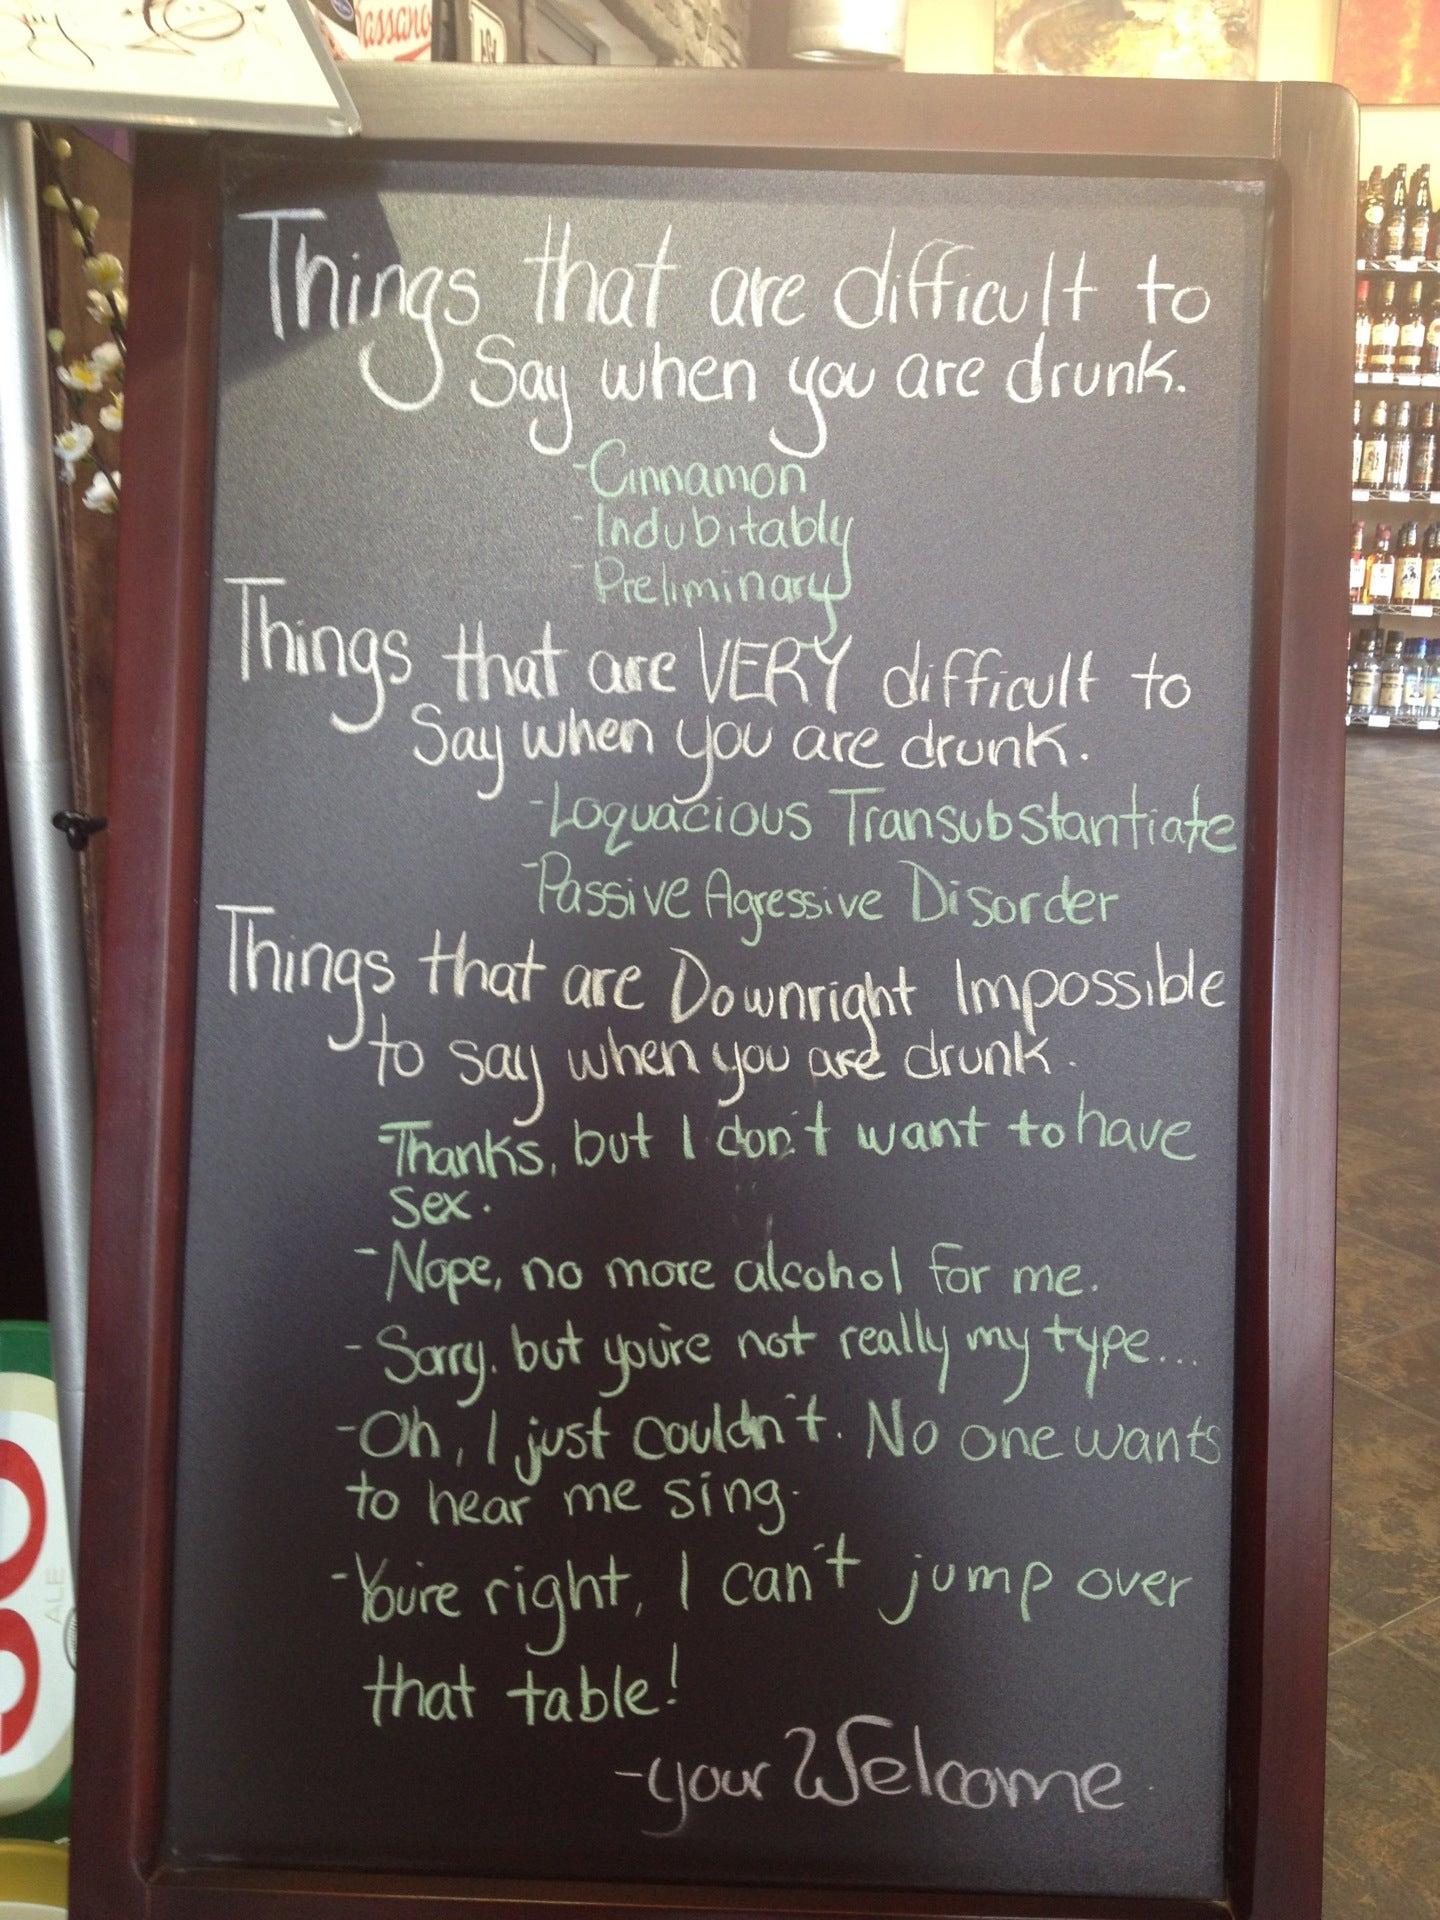 assano
Things that are difficult to
Say when you are drunk.
-Cinnamon
-Indubitably
-Preliminary
Things that are VERY difficult to
Say when you are drunk.
-Loquacious Transubstantiate
-Passive Agressive Disorder
Things that are Downright Impossible
to say when you are drunk.
-Thanks, but I don't want to have
sex.
-Nope, no more alcohol for me.
-Sorry. but you're not really my type...
-Oh, I just couldn't. No one wants
to hear me sing.
-You're right, I can't jump over
that table!
-your Welcome
ALE